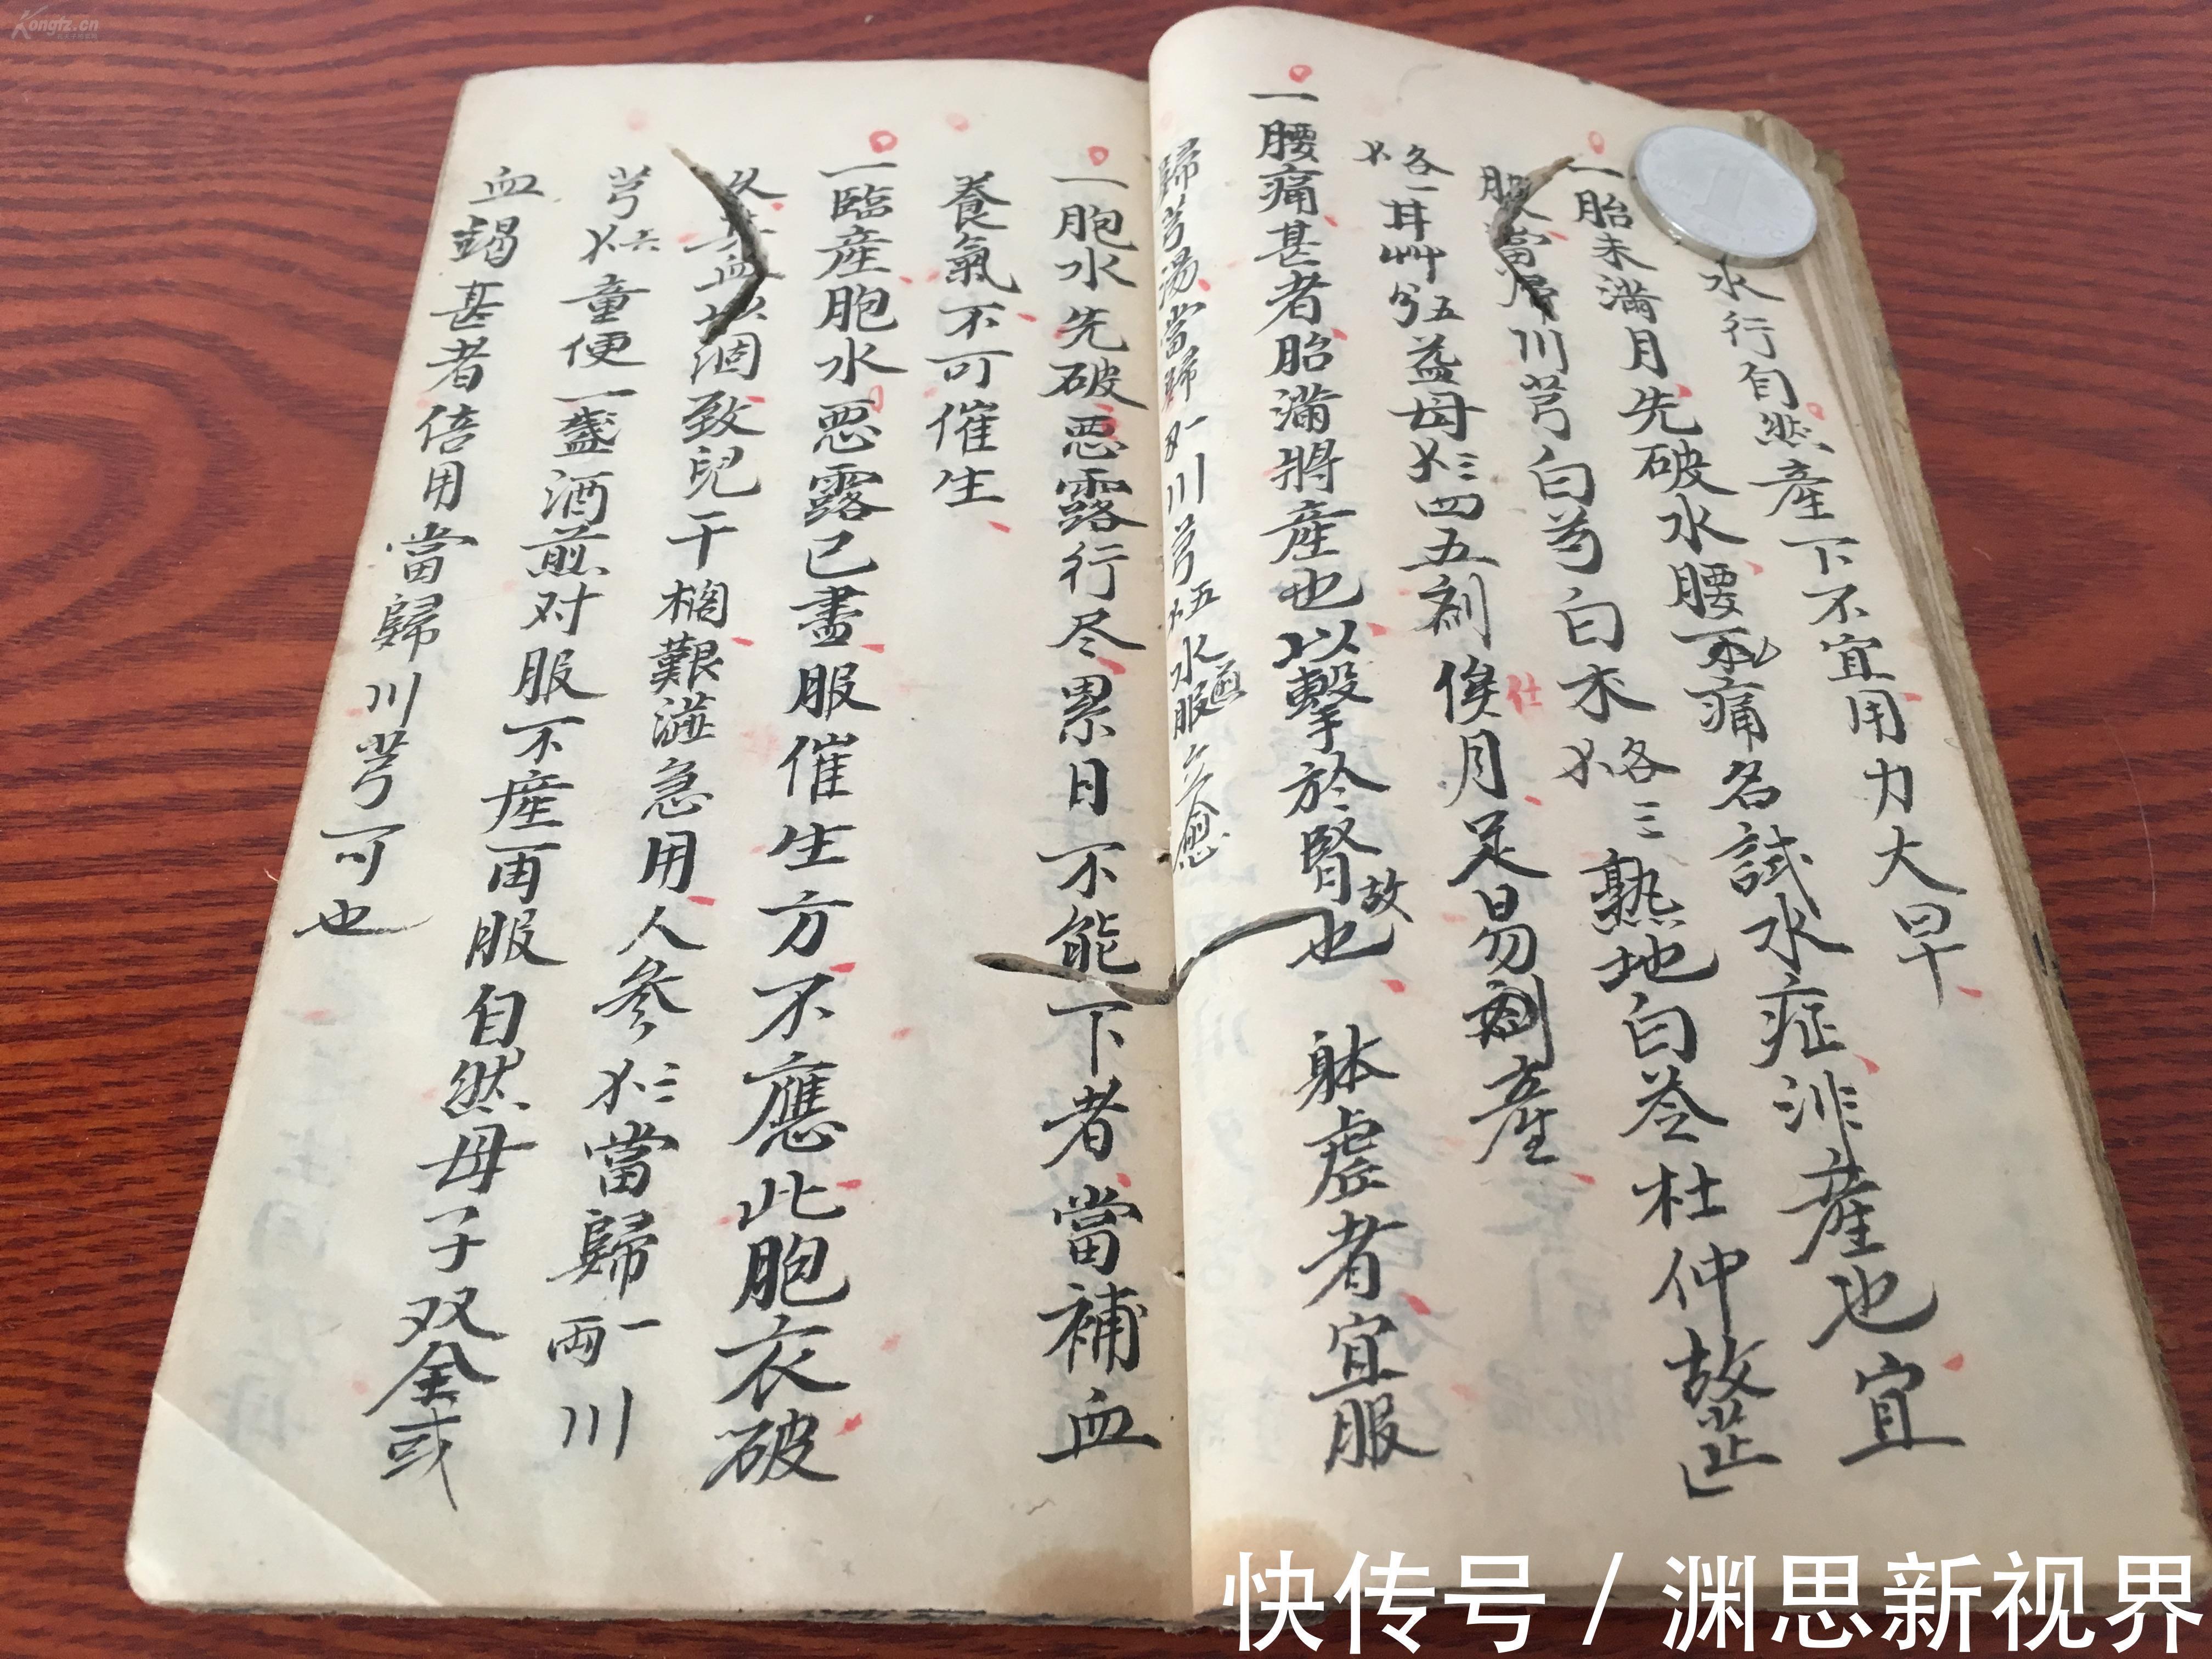 水行自然產下不宜用力大早
一胎未滿月先破水腰不痛名試水症非產也宜
服當歸川芎白芍白朮各三熟地白苓杜仲故芷
各一甘艸五益母三四五剤俟月足易產
一腰痛甚者胎滿將產也以擊於腎故也 躰虛者宜服
歸芎湯當歸一川芎五水煎服立愈
一胞水先破惡露行尽累日不能下者當補血
養氣不可催生
一臨產胞水惡露已盡服催生方不應此胞衣破
久其血涸致兒干橺艱澁急用人參三當歸一両川
芎六童便一盞酒煎对服不產再服自然母子双全或
血竭甚者倍用當歸川芎可也
Kongfz.cn
快传号 / 渊思新视界